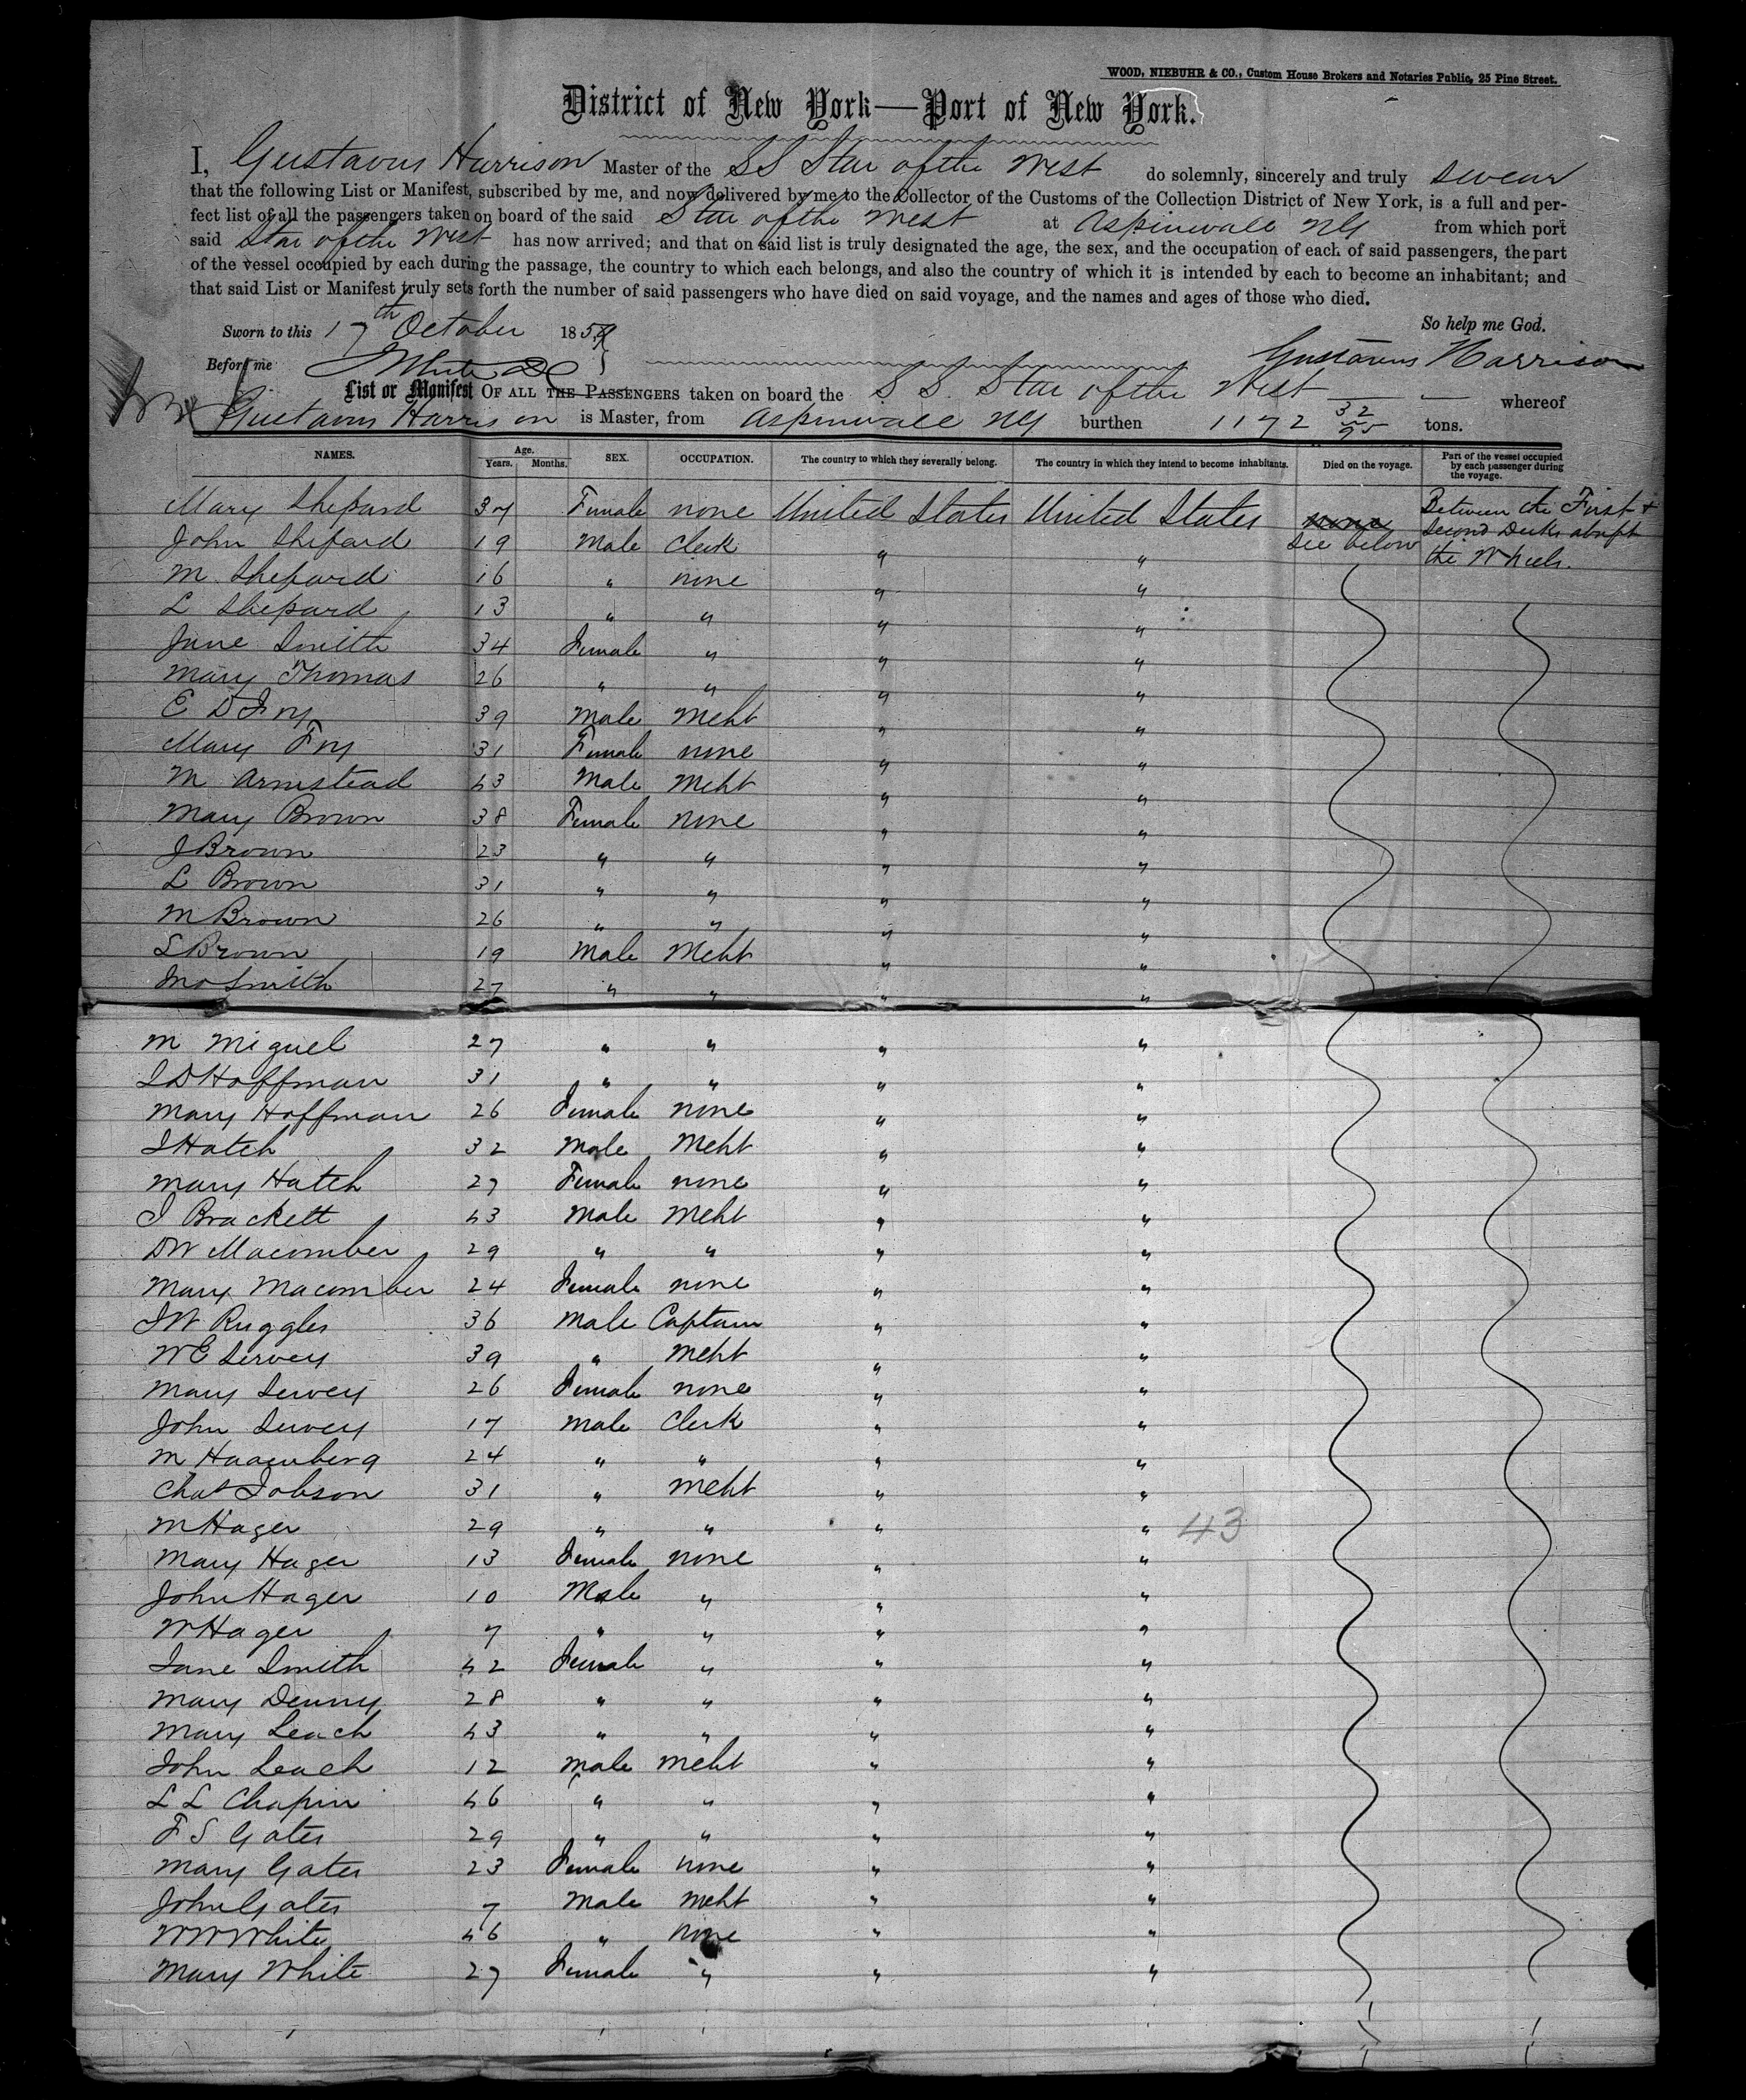 WOOD, NIEBUHR & CO., Custom House Brokers and Notaries Public, 25 Pine Street.
District of New York—Port of New York.
I, Gustavus Harrison Master of the SS Star of the West do solemnly, sincerely and truly swear
that the following List or Manifest, subscribed by me, and now delivered by me to the Collector of the Customs of the Collection District of New York, is a full and per-
fect list of all the passengers taken on board of the said Star of the West at Aspinwall NG from which port
said Star of the West has now arrived; and that on said list is truly designated the age, the sex, and the occupation of each of said passengers, the part
of the vessel occupied by each during the passage, the country to which each belongs, and also the country of which it is intended by each to become an inhabitant; and
that said List or Manifest truly sets forth the number of said passengers who have died on said voyage, and the names and ages of those who died.
Sworn to this 17th October 1859 So help me God.
Before me Gustavus Harrison
List or Manifest OF ALL THE PASSENGERS taken on board the S S. Star of the West whereof
Gustavus Harrison is Master, from Aspinwall NG burthen 1172 32/95 tons.
NAMES. Age. Years. Months. SEX. OCCUPATION. The country to which they severally belong. The country in which they intend to become inhabitants. Died on the voyage. Part of the vessel occupied by each passenger during the voyage.
Mary Shepard 37 Female none United States United States none Between the First &
John Shepard 19 Male Clerk " " See below Second Decks abaft
M. Shepard 16 " none " " the Wheels.
L Shepard 13 " " " "
Jane Smith 34 Female " " "
Mary Thomas 26 " " " "
E D Fry 39 Male Mcht " "
Mary Fry 31 Female none " "
M Armstead 43 Male Mcht " "
Mary Brown 38 Female none " "
J Brown 23 " " " "
L Brown 31 " " " "
M Brown 26 " " " "
S Brown 19 Male Mcht " "
Jno Smith 27 " " " "
M Miguel 27 " " " "
I D Hoffman 31 " " " "
Mary Hoffman 26 Female none " "
I Hatch 32 Male Mcht " "
Mary Hatch 27 Female none " "
I Brackett 43 Male Mcht " "
DW Macomber 29 " " " "
Mary Macomber 24 Female none " "
IW Ruggles 36 Male Captain " "
WE Servey 39 " Mcht " "
Mary Servey 26 Female none " "
John Servey 17 Male Clerk " "
M 24 " " " "
Chas Jobson 31 " Mcht " "
M Hager 29 " " " " 43
Mary Hager 13 Female none " "
John Hager 10 Male " " "
W Hager 7 " " " "
Jane Smith 42 Female " " "
Mary Denny 28 " " " "
Mary Leach 43 " " " "
John Leach 12 Male Mcht " "
L L Chapin 46 " " " "
F S Gates 29 " " " "
Mary Gates 23 Female none " "
John Gates 7 Male Mcht " "
WW White 46 " none " "
Mary White 27 Female " " "